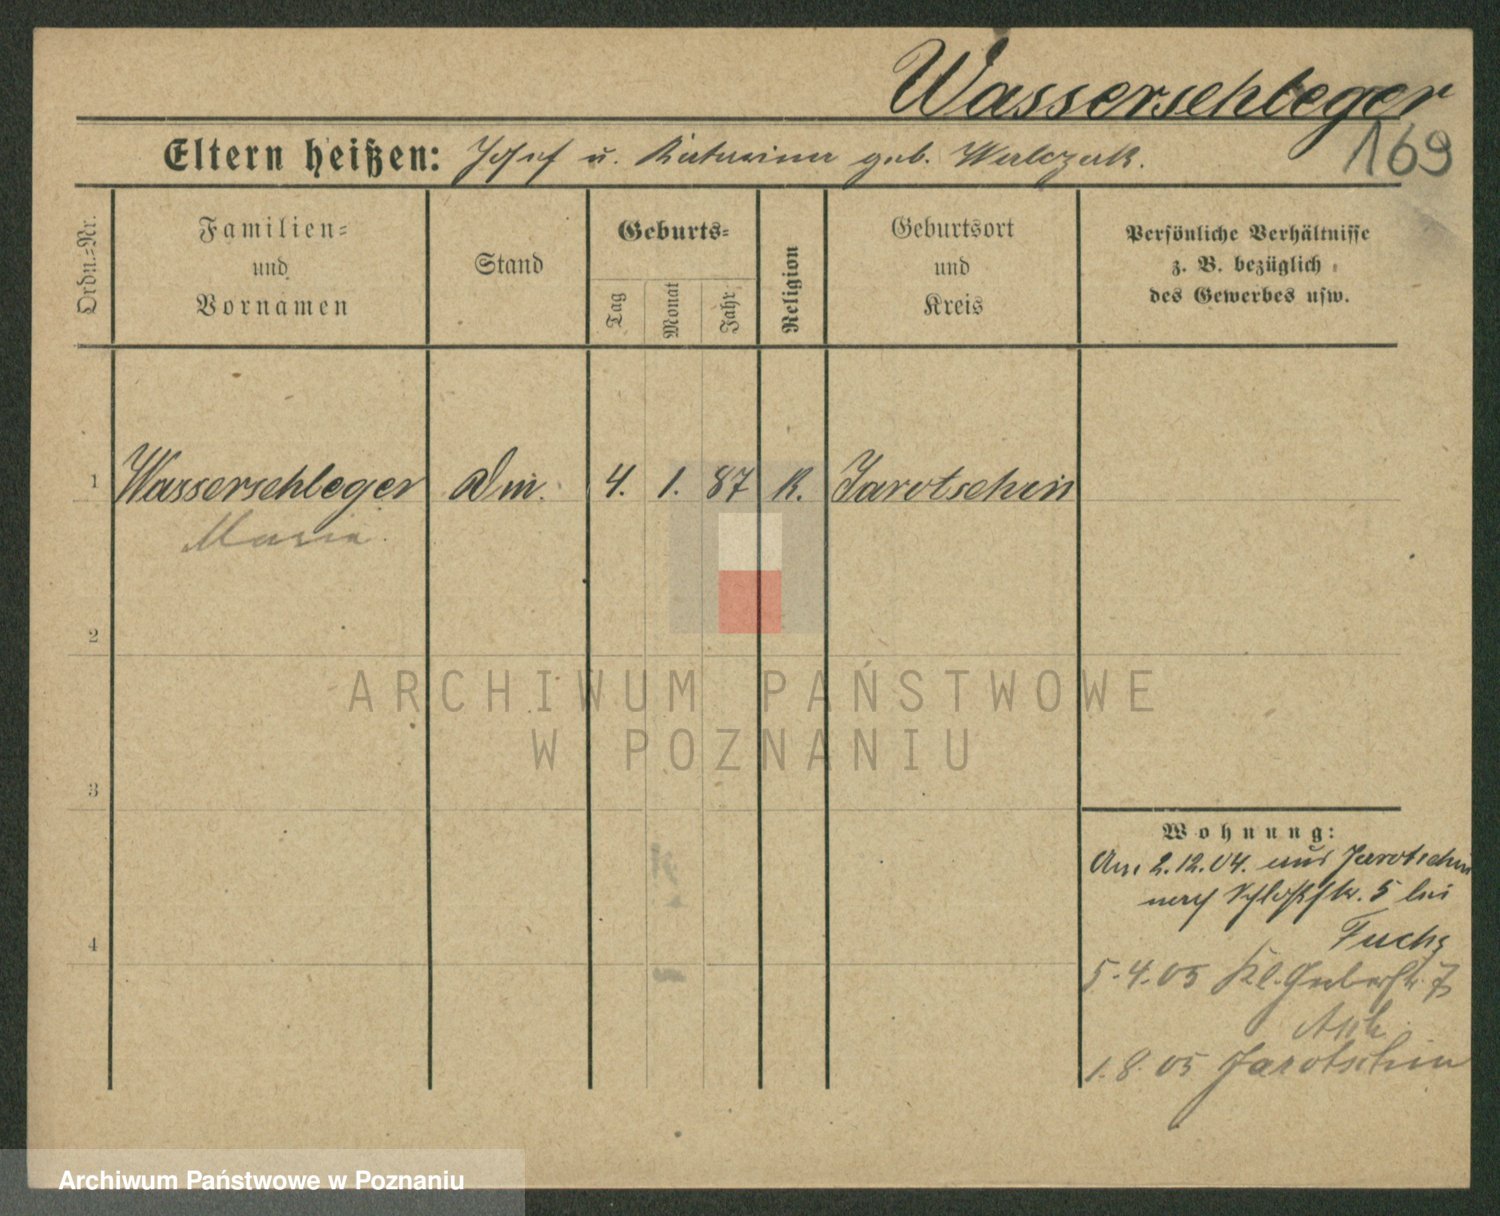 Wasserschleger
169
Eltern heißen: Josef u. Katarina geb. Walczak.
Ordn.-Nr.
Familien-
und
Vornamen
Stand
Geburts-
Tag
Monat
Jahr
Religion
Geburtsort
und
Kreis
Persönliche Verhältnisse
z. B. bezüglich
des Gewerbes usw.
1 Wasserschleger 4. 1. 87 K. Jarotschin
Maria.
2
ARCHIWUM PAŃSTWOWE
W POZNANIU
3
Wohnung:
Am 2.12.04. aus Jarotschin
nach Schloßstr. 5 bei
Fuchs
4
5.4.05 Kl. Gerberstr. 7
1.8.05 Jarotschin
Archiwum Państwowe w Poznaniu